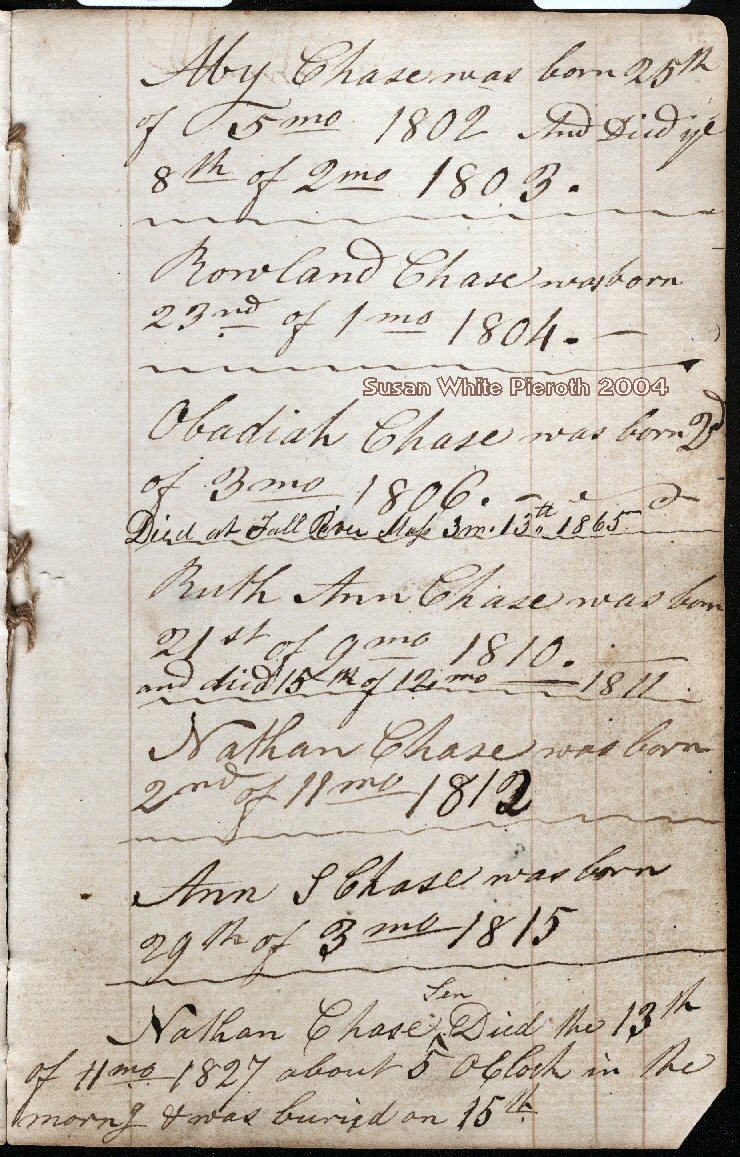 Aby Chase was born 25th
of 5mo 1802 And Died ye
8th of 2mo 1803.
Rowland Chase was born
23nd of 1mo 1804. —
Susan White Pieroth 2004
Obadiah Chase was born 2d
of 3mo 1806.
Died at Fall River Mass 3m. 13th 1865
Ruth Ann Chase was born
21st of 9mo 1810.
and died 15th of 12mo — 1811
Nathan Chase was born
2nd of 11mo 1812
Ann S Chase was born
29th of 3mo 1815
Nathan Chase Sen Died the 13th
of 11mo 1827 about 5 OClock in the
morng & was buried on 15th